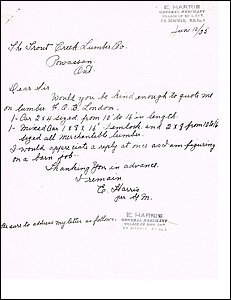 E. HARRIS
GENERAL MERCHANT
The Trout Creek Lumber Co.
Powassan,
Ont.
Dear Sir
Would you be kind enough to quote me
on lumber F.O.B. London.
1- Car 2x4 sized, from 10' to 16' in length.
1- Mixed Car 1 x 16' hemlock and 2 x 8 from
sized all merchantable lumber.
I would appreciate a reply at once as I am figuring
on a barn job.
Thanking you in advance.
I remain
E. Harris
per
Be sure to address my letter as follows:
E. HARRIS
GENERAL MERCHANT